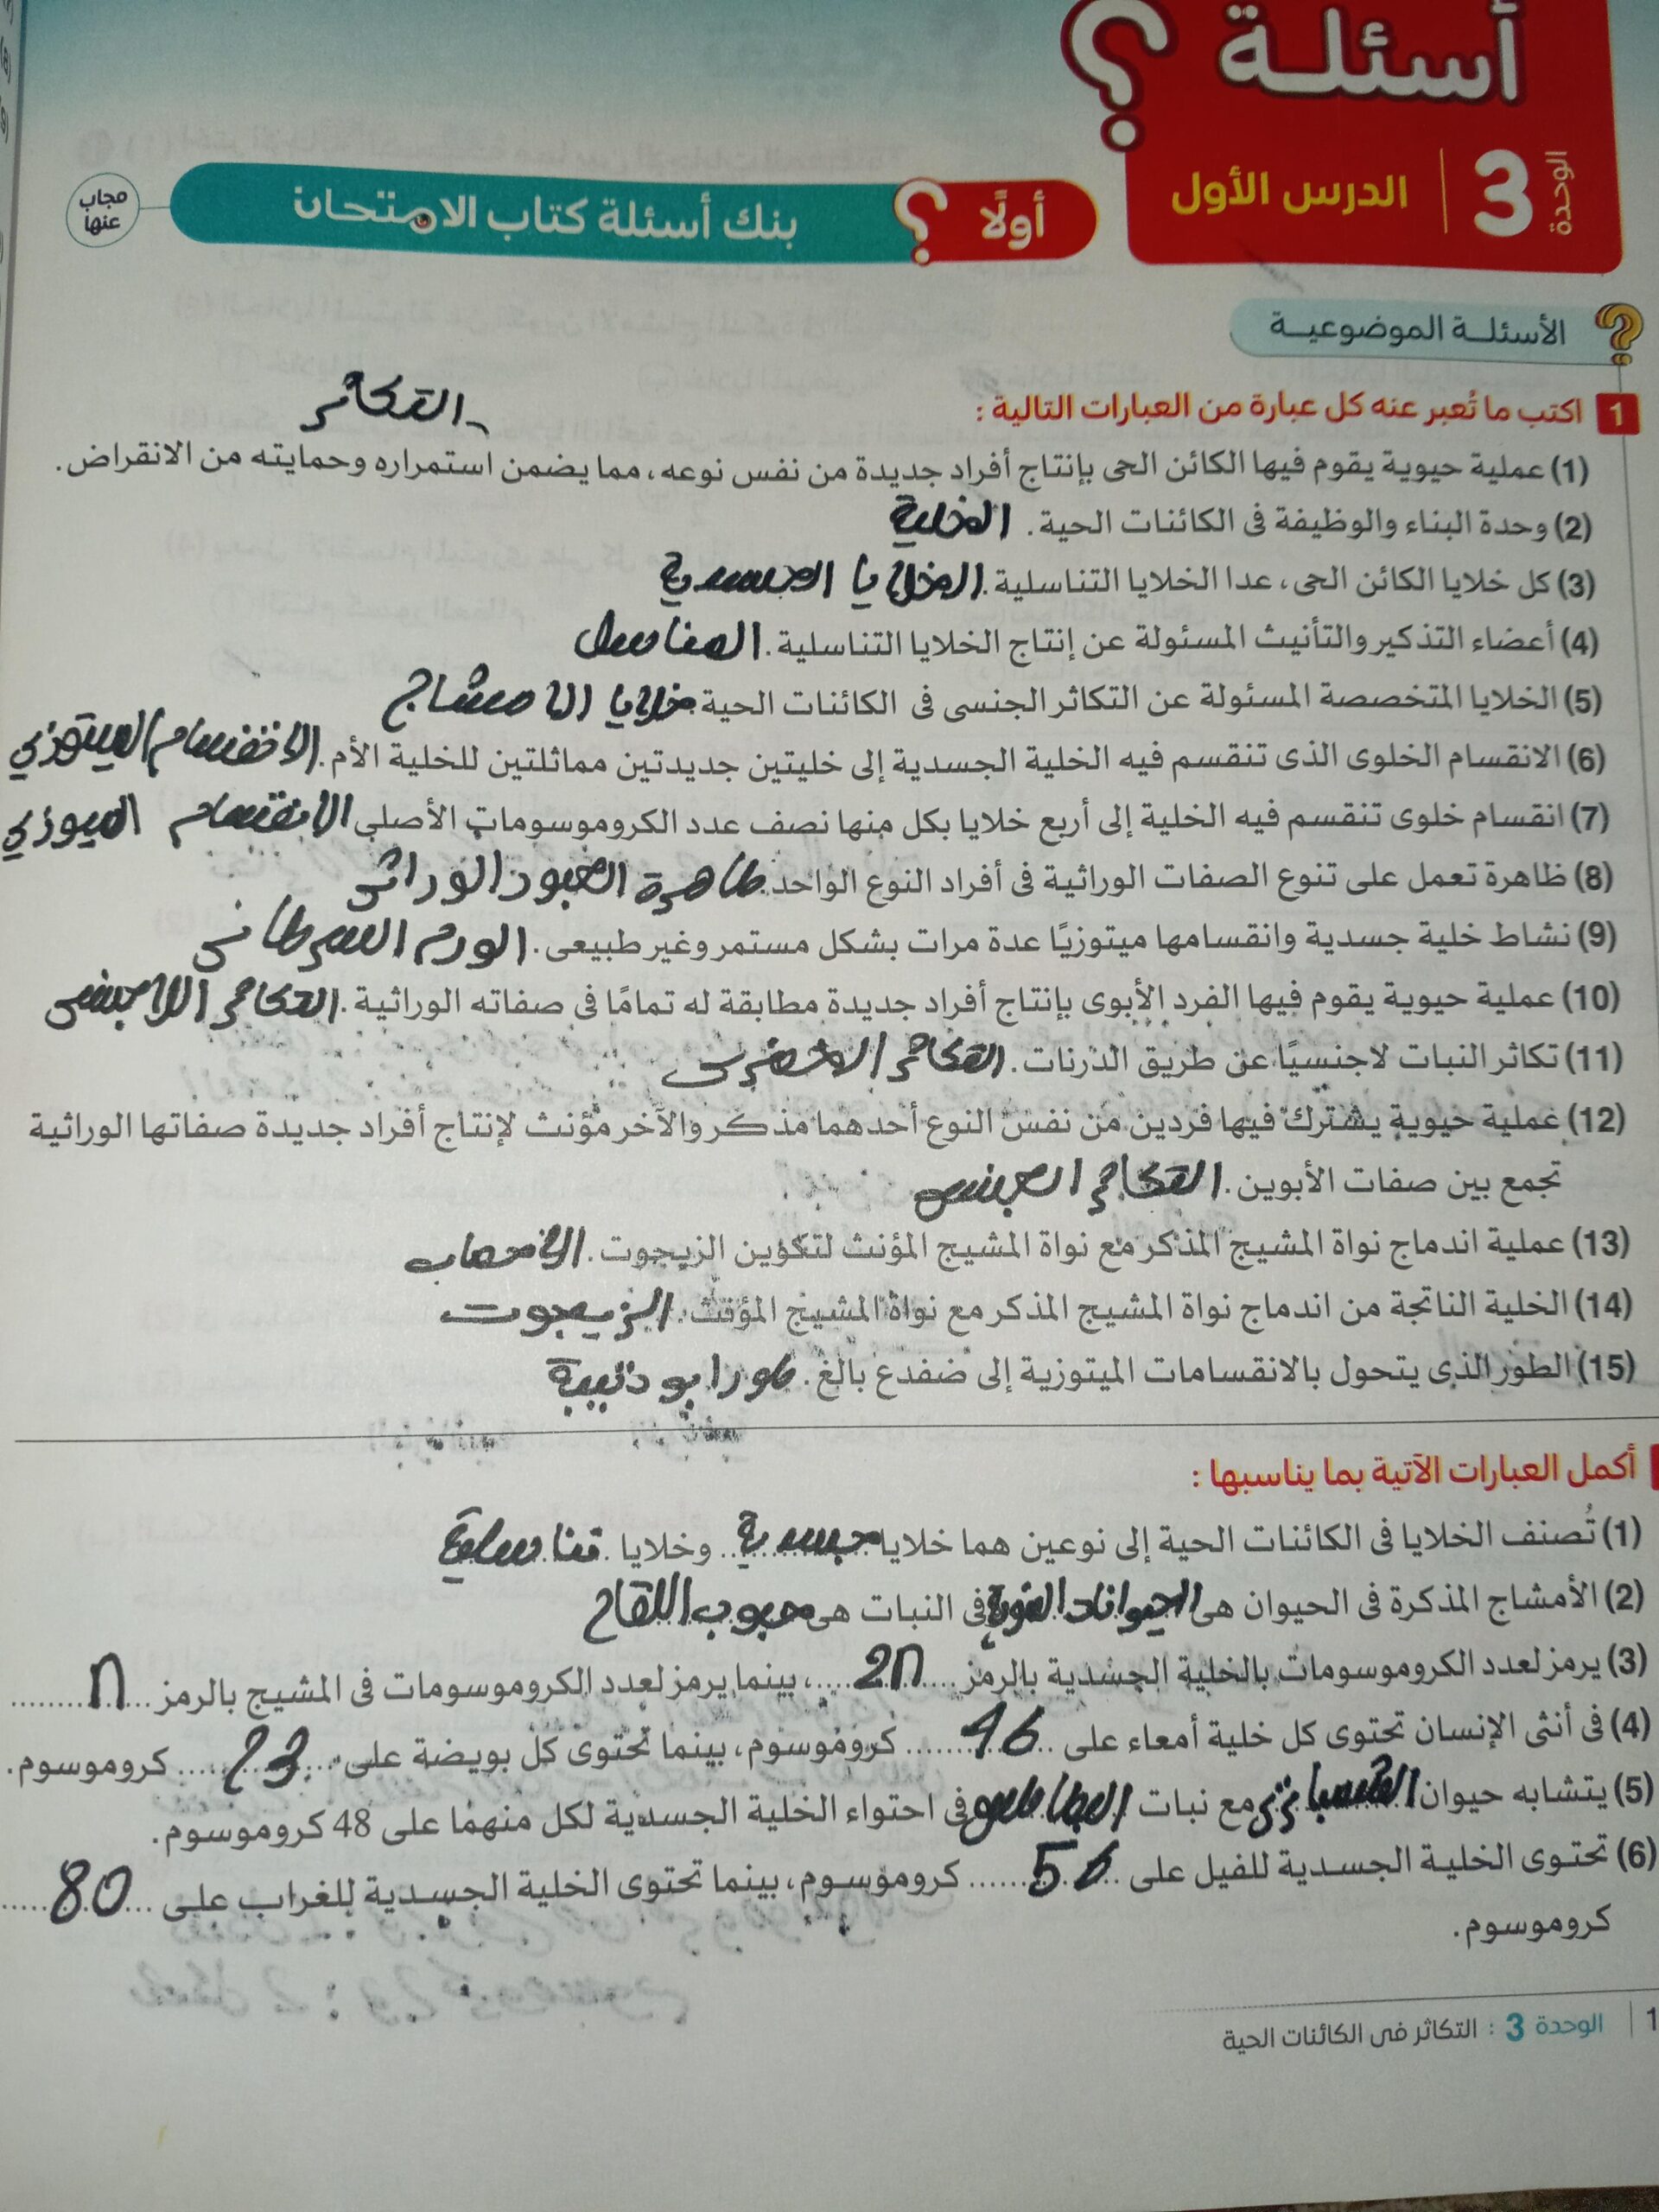 أسئلة ؟
الوحدة 3 | الدرس الأول
أولًا ؟ بنك أسئلة كتاب الامتحان
مجاب عنها
الأسئلة الموضوعية
1 اكتب ما تُعبر عنه كل عبارة من العبارات التالية :
التكاثر
(1) عملية حيوية يقوم فيها الكائن الحى بإنتاج أفراد جديدة من نفس نوعه، مما يضمن استمراره وحمايته من الانقراض.
(2) وحدة البناء والوظيفة فى الكائنات الحية. الخلية
(3) كل خلايا الكائن الحى، عدا الخلايا التناسلية. الخلايا الجسدية
(4) أعضاء التذكير والتأنيث المسئولة عن إنتاج الخلايا التناسلية. المناسل
(5) الخلايا المتخصصة المسئولة عن التكاثر الجنسى فى الكائنات الحية. خلايا الامشاج
(6) الانقسام الخلوى الذى تنقسم فيه الخلية الجسدية إلى خليتين جديدتين مماثلتين للخلية الأم. الانقسام الميتوزي
(7) انقسام خلوى تنقسم فيه الخلية إلى أربع خلايا بكل منها نصف عدد الكروموسومات الأصلى الانقسام الميوزي
(8) ظاهرة تعمل على تنوع الصفات الوراثية فى أفراد النوع الواحد. ظاهرة العبور الوراثى
(9) نشاط خلية جسدية وانقسامها ميتوزيًا عدة مرات بشكل مستمر وغير طبيعى. الورم السرطانى
(10) عملية حيوية يقوم فيها الفرد الأبوى بإنتاج أفراد جديدة مطابقة له تمامًا فى صفاته الوراثية. التكاثر اللاجنسى
(11) تكاثر النبات لاجنسيًا عن طريق الدرنات. التكاثر الخضرى
(12) عملية حيوية يشترك فيها فردين من نفس النوع أحدهما مذكر والآخر مؤنث لإنتاج أفراد جديدة صفاتها الوراثية
تجمع بين صفات الأبوين. التكاثر الجنسى
(13) عملية اندماج نواة المشيج المذكر مع نواة المشيج المؤنث لتكوين الزيجوت. الاخصاب
(14) الخلية الناتجة من اندماج نواة المشيج المذكر مع نواة المشيج المؤنث. الزيجوت
(15) الطور الذى يتحول بالانقسامات الميتوزية إلى ضفدع بالغ. طور ابو ذنيبة
أكمل العبارات الآتية بما يناسبها :
(1) تُصنف الخلايا فى الكائنات الحية إلى نوعين هما خلايا جسدية وخلايا تناسلية
(2) الأمشاج المذكرة فى الحيوان هى الحيوانات المنوية فى النبات هى حبوب اللقاح
(3) يرمز لعدد الكروموسومات بالخلية الجسدية بالرمز 2n، بينما يرمز لعدد الكروموسومات فى المشيج بالرمز n
(4) فى أنثى الإنسان تحتوى كل خلية أمعاء على 46 كروموسوم، بينما تحتوى كل بويضة على 23 كروموسوم.
(5) يتشابه حيوان الشمبانزى مع نبات البطاطس فى احتواء الخلية الجسدية لكل منهما على 48 كروموسوم.
(6) تحتوى الخلية الجسدية للفيل على 56 كروموسوم، بينما تحتوى الخلية الجسدية للغراب على 80
كروموسوم.
1 | الوحدة 3 : التكاثر فى الكائنات الحية